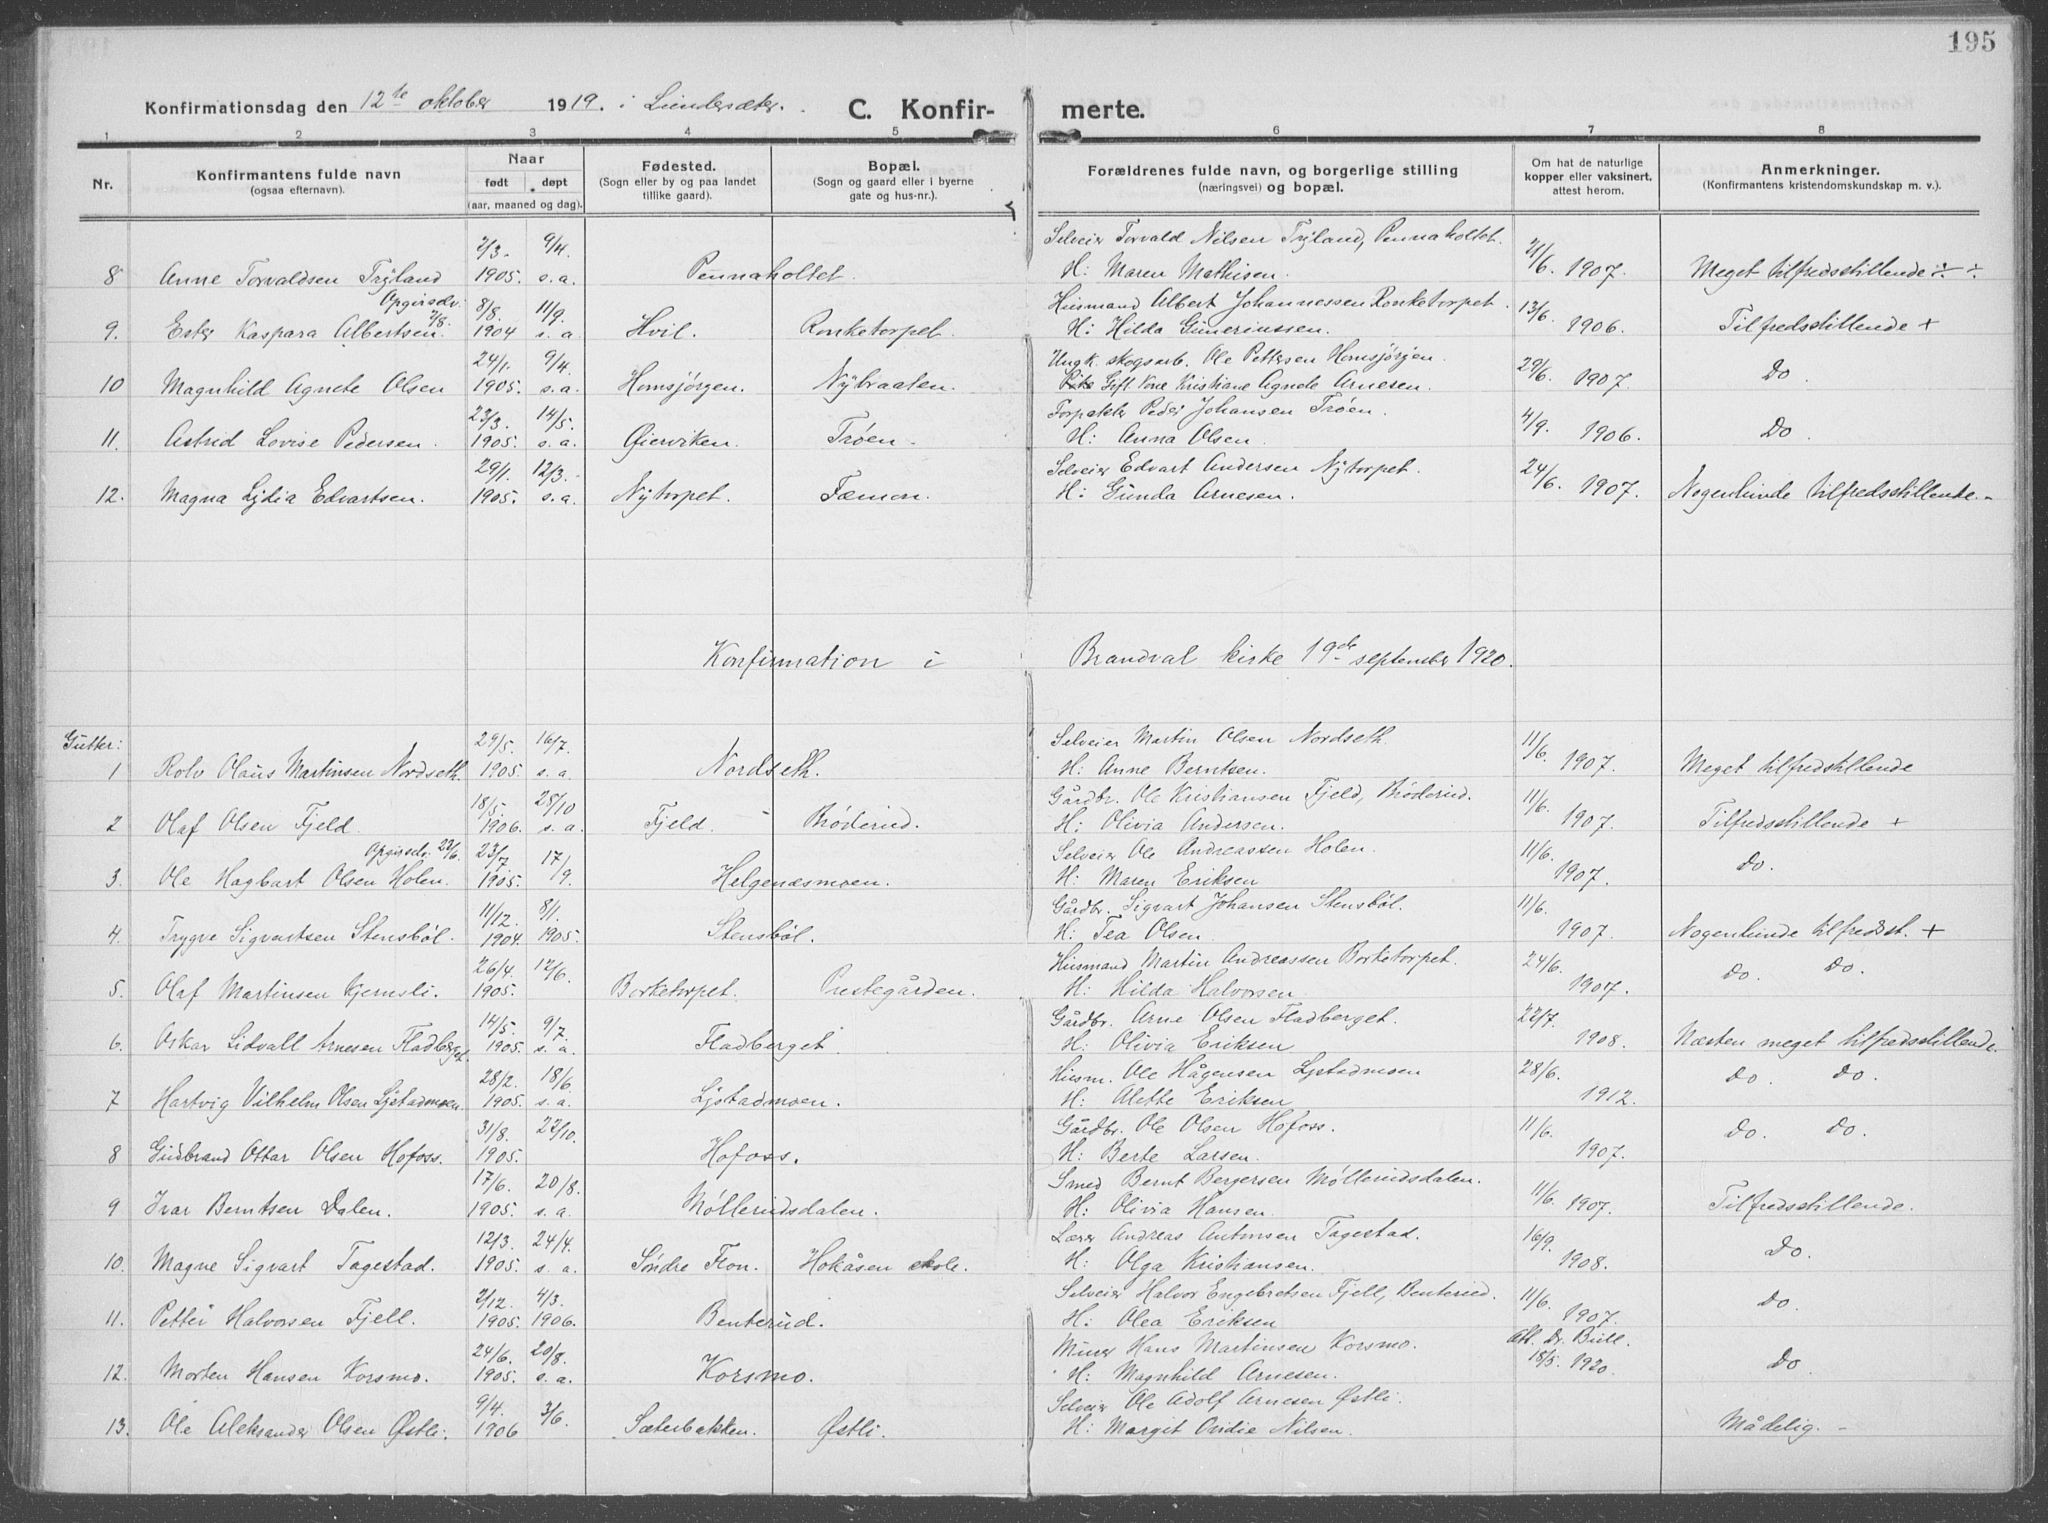 195
Konfirmationsdag den 12te oktober 1919. i Lundersæter. C. Konfir- merte.
1 2 3 4 5 6 7 8
Nr. Konfirmantens fulde navn (ogsaa efternavn). Naar født døpt (aar, maaned og dag). Fødested. (Sogn eller by og paa landet tillike gaard). Bopæl. (Sogn og gaard eller i byerne gate og hus-nr.). Forældrenes fulde navn, og borgerlige stilling (næringsvei) og bopæl. Om hat de naturlige kopper eller vaksinert, attest herom. Anmerkninger. (Konfirmantens kristendomskundskap m. v.).
2/3. 9/4. Selveier Torvald Nilsen Tryland, Pennaholtet. 21/6
8 Anne Torvaldsen Tryland 1905. s.a. Pennaholtet. H: Maren Mathisen. 1907. Meget tilfredsstillende ÷ ÷
Opgir selv: 7/8. 8/8. 11/9. Husmand Albert Johannessen Ronketorpet. 13/6
9. Ester Kaspara Albertsen. 1904 s.a. Hvil. Ronketorpet. H: Hilda Guneriussen. 1906. Tilfredsstillende +
24/1. 9/4. Ungk. skogsarb. Ole Pettersen Homsjørgen. 29/6
10 Magnhild Agnete Olsen 1905. s.a. Homsjørgen. Nybraaten. Gift Kone Kristiane Agnete Arnesen. 1907. Do.
23/3. 14/5. Forpakter Peder Johansen Trøen. 4/9
11. Astrid Lovise Pedersen. 1905. s.a. Øierviken. Trøen. H: Anna Olsen. 1906. Do.
29/1. 12/3. Selveier Edvart Andersen Nytorpet. 24/6
12. Magna Lydia Edvartsen. 1905. s.a. Nytorpet. Fæmon. H: Gunda Arnesen. 1907. Nogenlunde tilfredsstillende. -
Konfirmation i Brandval kirke 19de september 1920.
Gutter: 29/5. 16/7. Selveier Martin Olsen Nordseth. 11/6
1 Rolv Olaus Martinsen Nordseth 1905. s.a. Nordseth. H: Anne Berntsen. 1907. Meget tilfredstillende
18/5. 28/10 Gårdbr. Ole Kristiansen Fjeld, Brøderud. 11/6
2 Olaf Olsen Fjeld. 1906. s.a. Fjeld. - Brøderud. H: Olivia Andersen. 1907. Tilfredsstillende +
Opgir selv. 22/6. 23/7 17/9 Selveier Ole Andreassen Holen. 11/6.
3. Ole Hagbart Olsen Holen. 1905. Helgenæsmoen. H: Maren Eriksen 1907. Do.
11/12. 8/1. Gårdbr. Sigvart Johansen Stensbøl. 11/6.
4. Trygve Sigvartsen Stensbøl. 1904. 1905. Stensbøl. H: Tea Olsen 1907. Nogenlunde tilfredsst. +
26/4. 12/6. Husmand Martin Andreassen Borketorpet. 24/6.
5. Olaf Martinsen Kjernsli. 1905. Borketorpet. Prestegården. H: Hilda Halvorsen 1907. Do. Do.
14/5. 9/7. Gårdbr. Arne Olsen Fladberget. 22/7.
6. Oskar Lidvall Arnesen Fladberget. 1905. s.a. Fladberget. H: Olivia Eriksen 1908. Næsten meget tilfredsstillende.
28/2. 18/6 Husm. Ole Hågensen Lystadmoen 28/6.
7 Hartvig Vilhelm Olsen Lystadmoen. 1905. s.a. Lystadmoen. H: Alette Eriksen 1912. Do. Do.
31/8. 22/10. Gårdbr. Ole Olsen Hofoss. 11/6.
8 Gudbrand Ottar Olsen Hofoss. 1905. Hofoss. H: Berte Larsen. 1907. Do. Do.
17/6. 20/8. Smed Bernt Bergersen Møllerudsdalen. 11/6.
9 Ivar Berntsen Dalen. 1905. s.a. Møllerudsdalen. H: Olivia Hansen. 1907. Tilfredsstillende.
12/3. 24/4. Lærer Andreas Antonsen Tagestad. 16/9.
10. Magne Sigvart Tagestad. 1905. s.a. Søndre Flon. Hokåsen skole. H: Olga Kristiansen. 1908. Do.
2/12. 4/3. Selveier Halvor Engebretsen Fjell, Benterud. 11/6.
11. Petter Halvorsen Fjell. 1905. 1906. Benterud. H: Olea Eriksen 1907. Do.
24/6. 20/8. Murer Hans Martinsen Korsmo. Att. Dr. Bull.
12. Morten Hansen Korsmo. 1905. s.a. Korsmo. H: Magnhild Arnesen. 18/5. 1920. Do
9/4. 3/6. Selveier Ole Adolf Arnesen Østli.
13. Ole Aleksander Olsen Østli. 1906 Sæterbakken. Østli. H: Margit Ovidie Nilsen. Mådelig. -